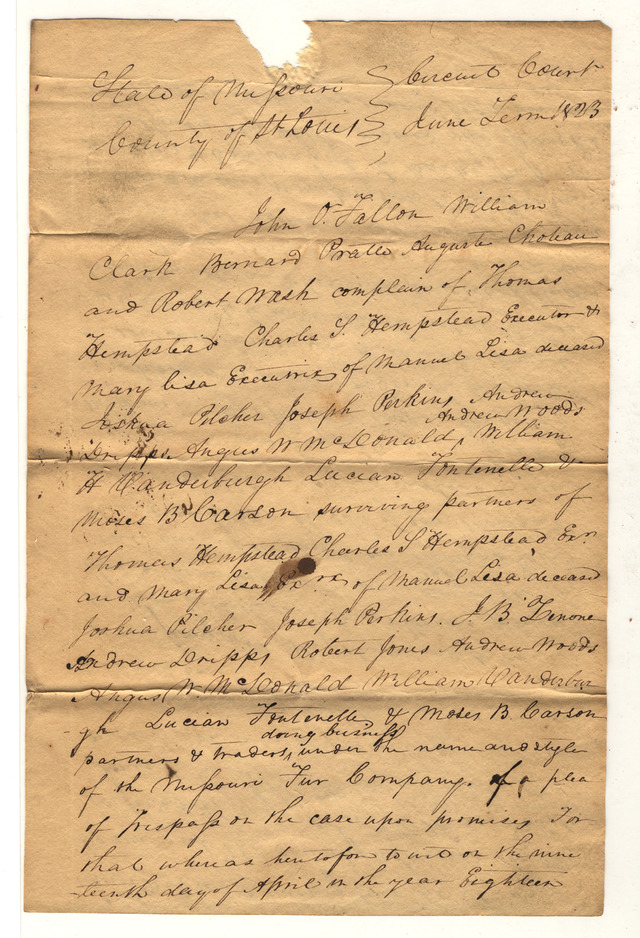 State of Missouri Circuit Court
County of St Louis June Term 1823
John O. Fallon William
Clark Bernard Pratte Auguste Choteau
and Robert Wash complain of Thomas
Hempstead Charles S. Hempstead Executor &
Mary Lisa Executrix of Manuel Lisa deceased
Joshua Pilcher Joseph Perkins Andrew
Andrew Woods
Dripps. Angus W McDonald, William
H Vanderburgh Lucian Fontenelle &
Moses B Carson surviving partners of
Thomas Hempstead Charles S Hempstead Exr
and Mary Lisa Ex rx of Manuel Lisa deceased
Joshua Pilcher Joseph Perkins. J. B. Zenone
Andrew Dripps Robert Jones Andrew Woods
Angus W McDonald William Vanderbur
-gh Lucian Fontenelle & Moses B Carson
doing business
partners & traders, under the name and style
of the Missouri Fur Company. of a plea
of Trespass on the case upon promises For
that whereas heretofore to wit on the nine
teenth day of April in the year Eighteen